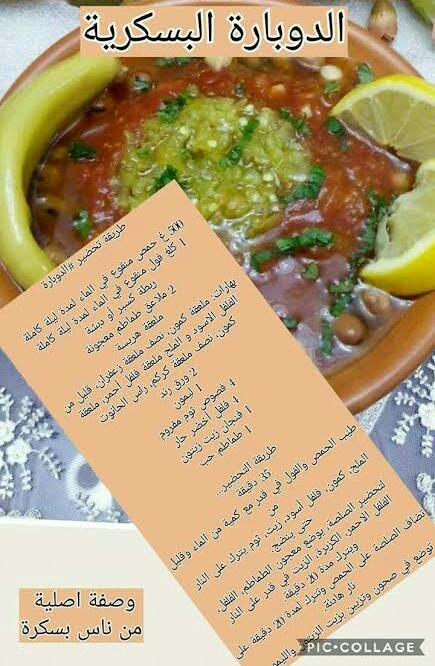 الدوبارة البسكرية
طريقة تحضير #الدوبارة
500 غ حمص منقوع في الماء لمدة ليلة كاملة
1 كلغ فول منقوع في الماء لمدة ليلة كاملة
ربطة كسبر أو دبشة
2 ملاعق طماطم معجونة
ملعقة هريسة
بهارات: ملعقة كمون، نصف ملعقة زعفران، قليل من
الفلفل الأسود و الملح ملعقة فلفل أحمر، ملعقة
كمون، نصف ملعقة كركم، راس الحانوت
2 ورق رند
1 ليمون
4 فصوص ثوم مفروم
4 فلفل أخضر حار
فنجان زيت زيتون
1 طماطم حب
طريقة التحضير..
35 دقيقة
من
طيب الحمص والفول في قدر مع كمية من الماء وقليل
الملح، كمون، فلفل أسود، زيت، ثوم يترك على النار
حتى ينضج.
لتحضير الصلصة، يوضع معجون الطماطم، الفلفل،
الفلفل الأحمر، الكزبرة، الزيت في قدر على النار
ويترك مدة 20 دقيقة.
تضاف الصلصة على الحمص وتترك لمدة 20 دقيقة على
نار هادئة.
توضع في صحون وتزين بزيت الزيتون والليمون
وصفة اصلية
من ناس بسكرة
PIC•COLLAGE